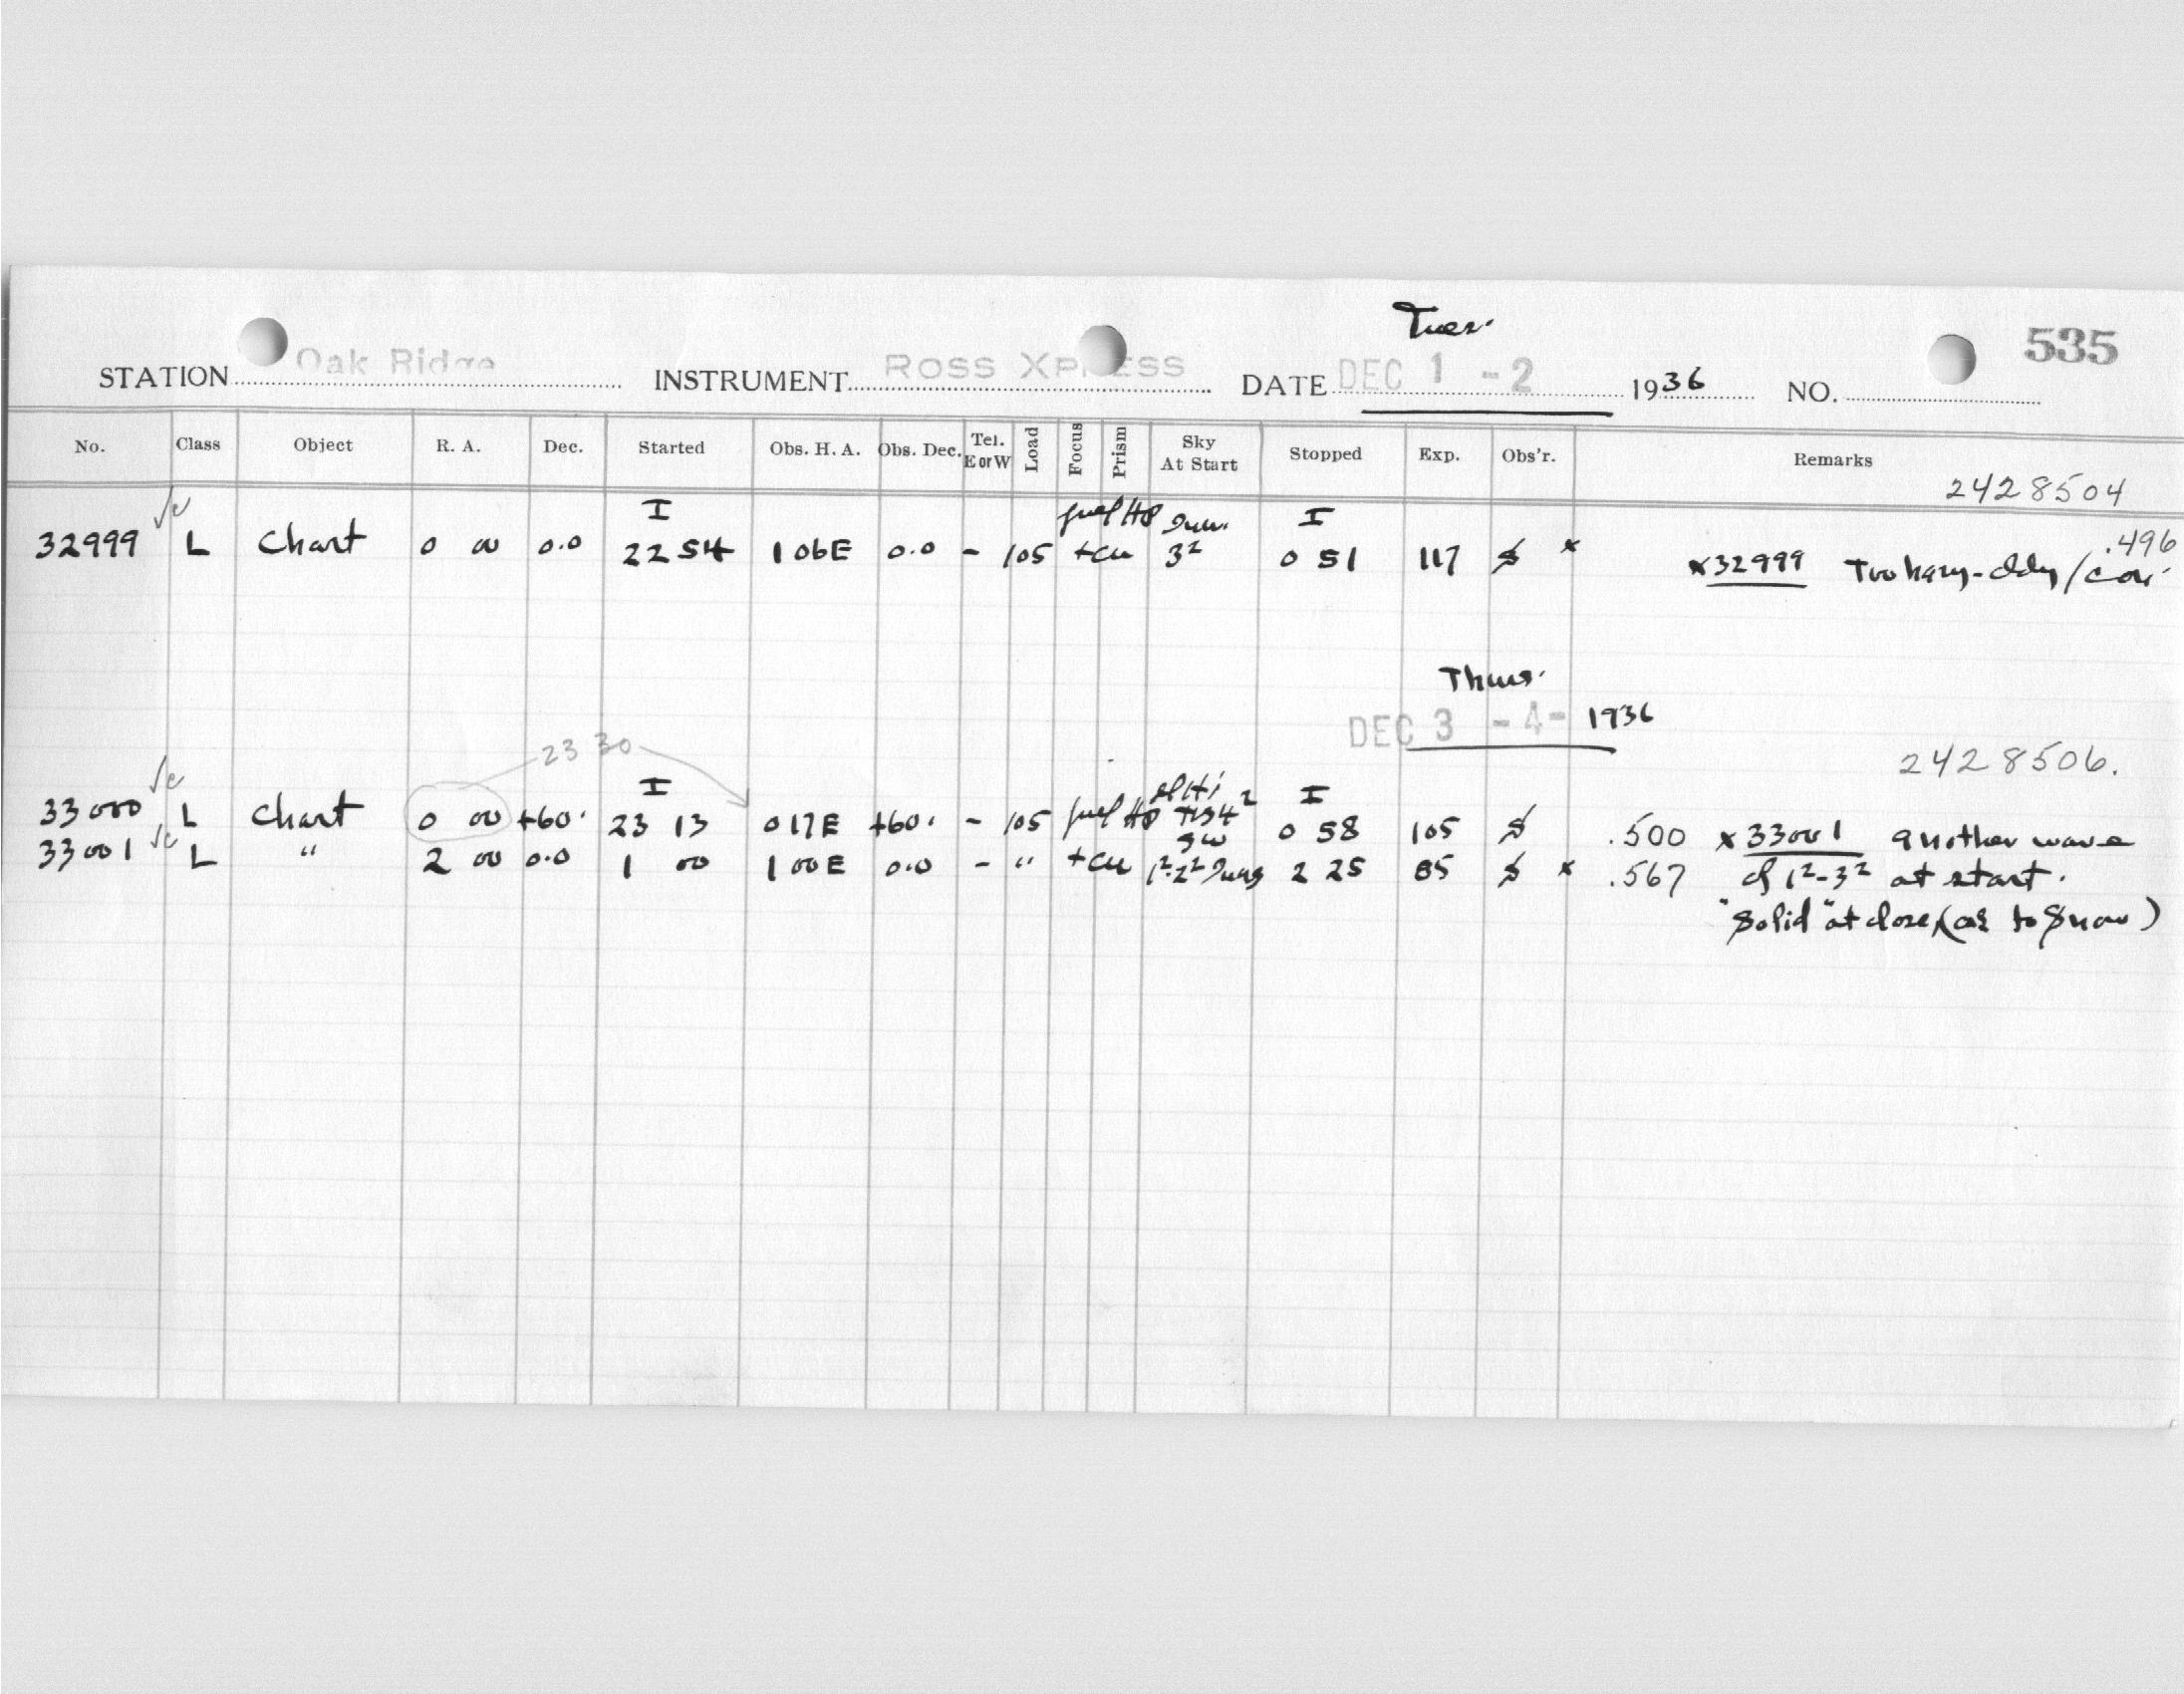 Tues.
535
STATION Oak Ridge INSTRUMENT ROSS XPRESS DATE DEC 1 - 2 1936 NO.
No. Class Object R. A. Dec. Started Obs. H. A. Obs. Dec. Tel. E or W Load Focus Prism Sky At Start Stopped Exp. Obs'r. Remarks
2428504
I I
32999 L Chart 0 00 0.0 22 54 1 06E 0.0 - 105 +cu 3² 0 51 117 $ x .496
x32999 Too hazy-
Thurs.
DEC 3 - 4 - 1936
23 30
2428506.
I I
33000 L Chart 0 00 +60. 23 13 0 17E +60. - 105 0 58 105 $ .500 x33001 another wave
33001 L " 2 00 0.0 1 00 1 00E 0.0 - " +cu 1²-2² 2 25 85 $ x .567 of 1²-3² at start.
"Solid" at close to Snow)